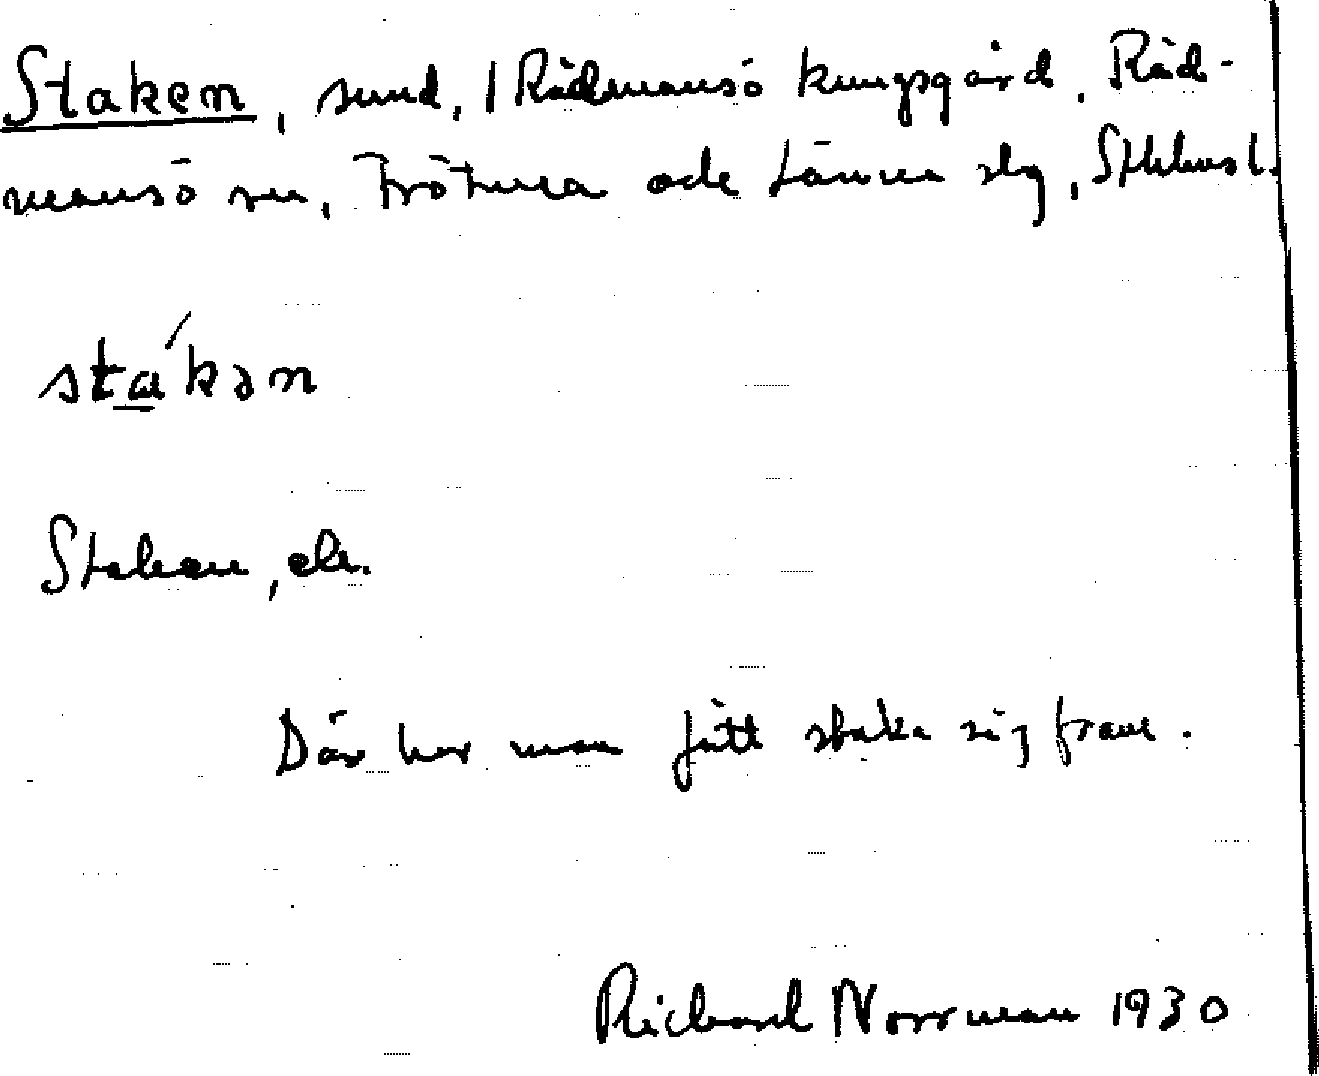 Staken, sund, / Rådmansö kungsgård, Råd-
mansö sn, Frötuna och Länna slg, Sthlms l.
sta´kən
Staken, ek.
Där har man fått staka sig fram.
Richard Norrman 1930